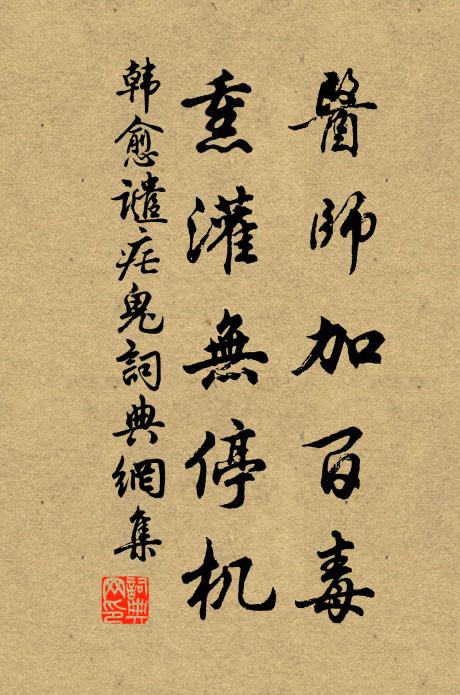 醫師加百毒
熏灌無停机
韩愈譴疟鬼詞典網集
詞典网印